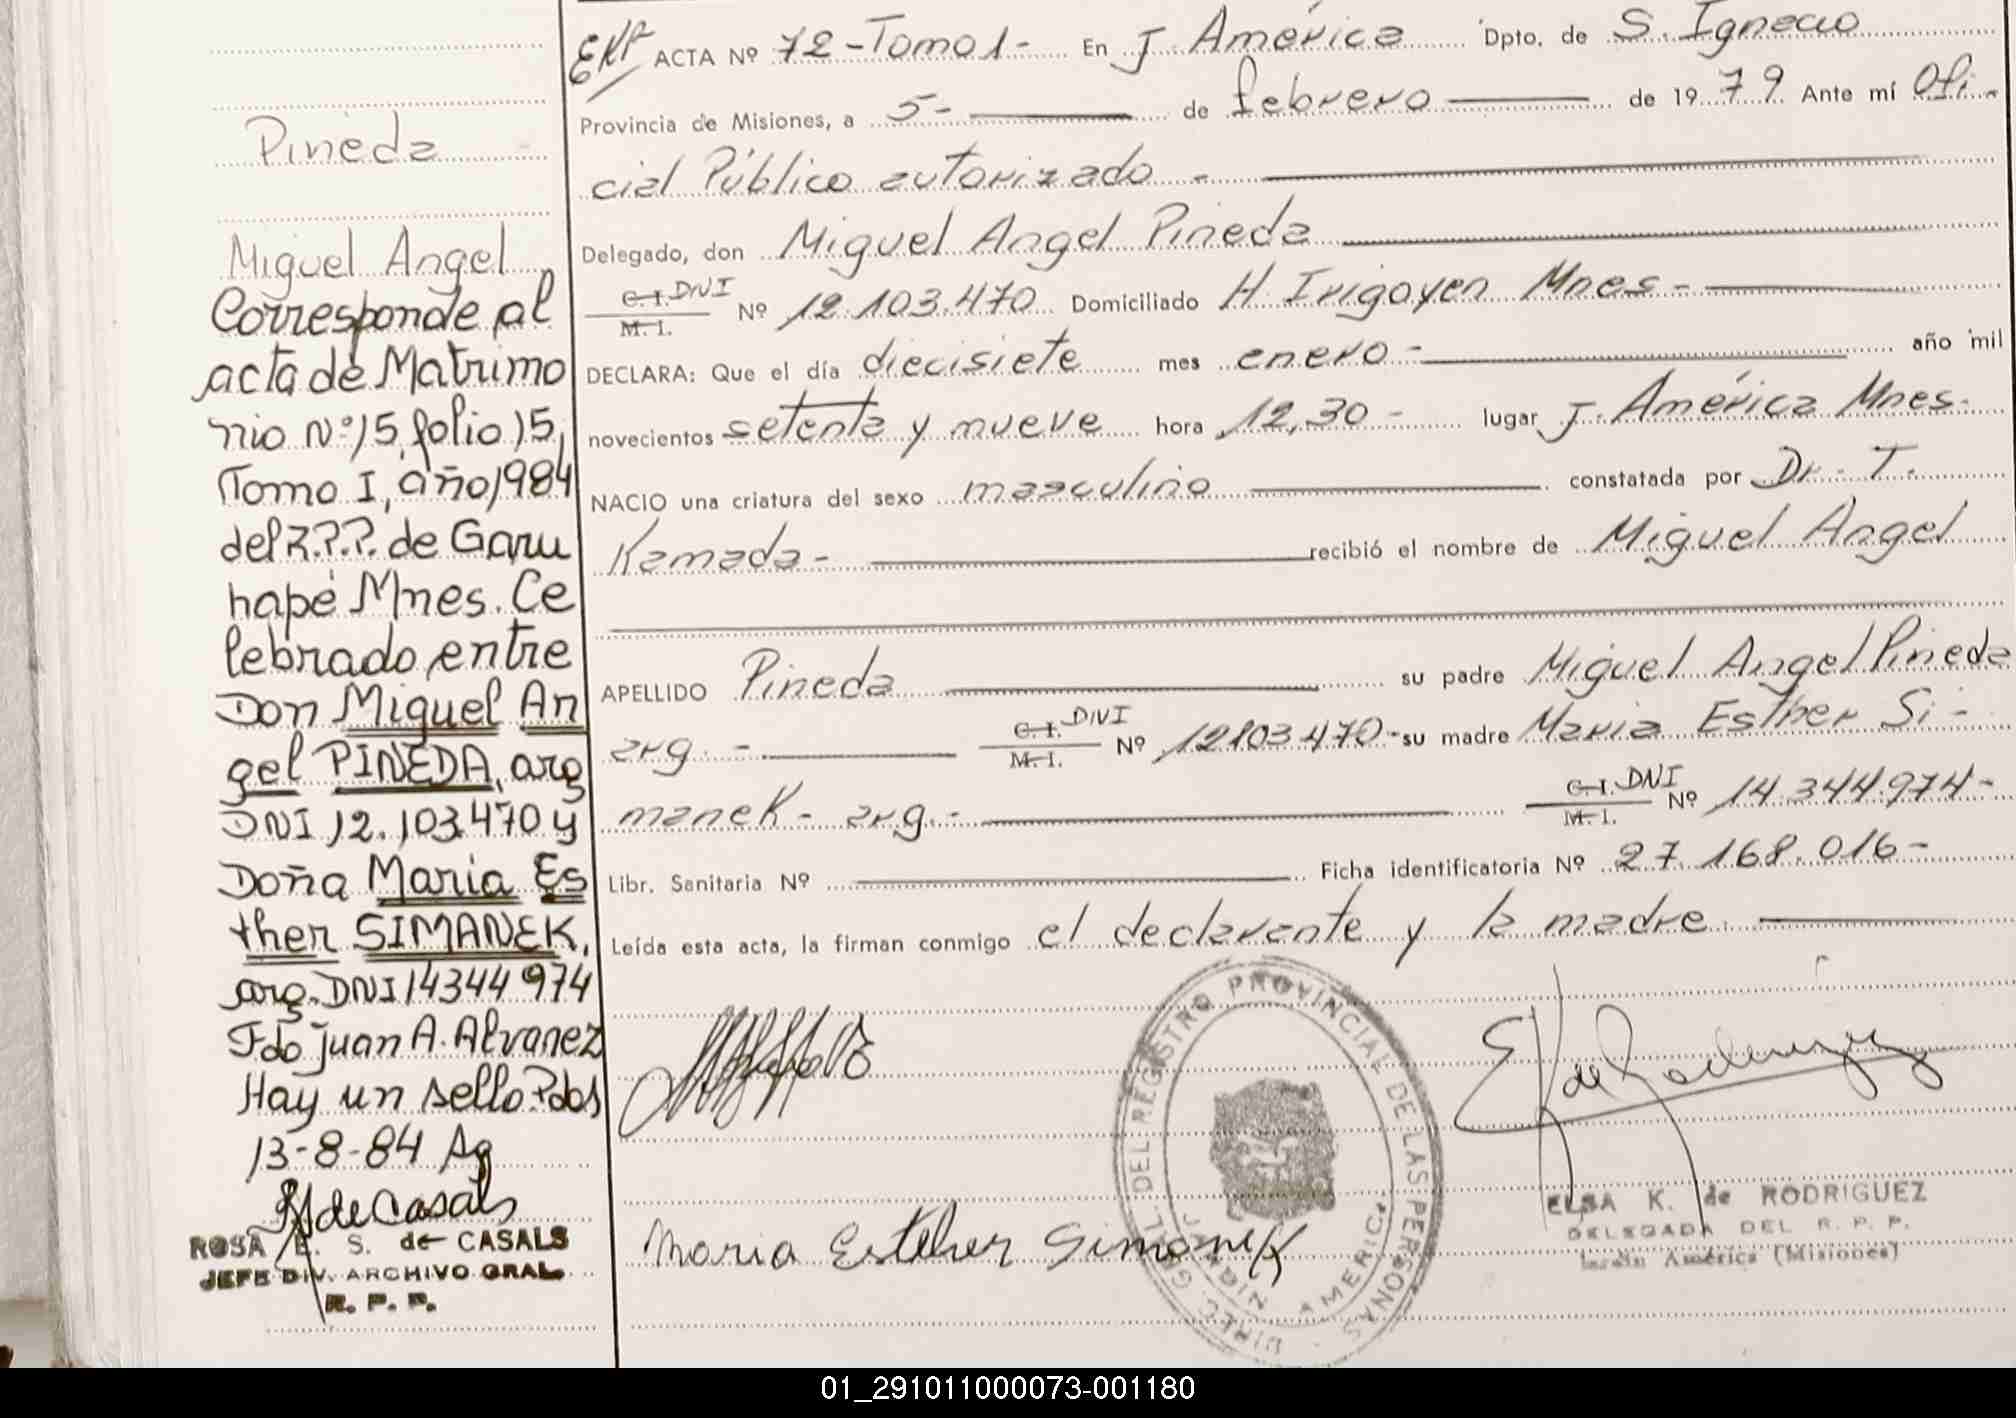 Pineda
Miguel Angel
Corresponde al
acta de Matrimo
nio Nº 15, folio 15,
Tomo I, año 1984
del R.P.P. de Garu
hapé Mnes. Ce
lebrado entre
Don Miguel An
gel PINEDA, arg
DNI 12.103.470 y
Doña Maria Es
ther SIMANEK,
arg. DNI 14344974
Fdo Juan A. Alvarez
Hay un sello. Pdas
13-8-84 Ag
de Casals
ROSA E. S. de CASALS
JEFE DIV. ARCHIVO GRAL.
R. P. P.
ACTA Nº 72 - Tomo 1 - En J. América Dpto. de S. Ignacio
Provincia de Misiones, a 5 - de febrero de 1979 Ante mí Ofi-
cial Público autorizado -
Delegado, don Miguel Angel Pineda
C. I. DNI
M. I. Nº 12.103.470 Domiciliado H. Irigoyen Mnes -
DECLARA: Que el día diecisiete mes enero - año mil
novecientos setenta y nueve hora 12,30 - lugar J. América Mnes -
NACIO una criatura del sexo masculino constatada por Dr. T.
Kamada - recibió el nombre de Miguel Angel
APELLIDO Pineda su padre Miguel Angel Pineda
arg. - C. I. DNI M. I. Nº 12103470 - su madre Maria Esther Si-
manek - arg. - C. I. DNI M. I. Nº 14.344.974 -
Libr. Sanitaria Nº Ficha identificatoria Nº 27.168.016 -
Leída esta acta, la firman conmigo el declarante y la madre.
DIREC. GRAL. DEL REGISTRO PROVINCIAL DE LAS PERSONAS
JARDIN AMERICA
E K de Rodriguez
Maria Estther Simanek
ELSA K. de RODRIGUEZ
DELEGADA DEL R. P. P.
Jardín América (Misiones)
01_291011000073-001180